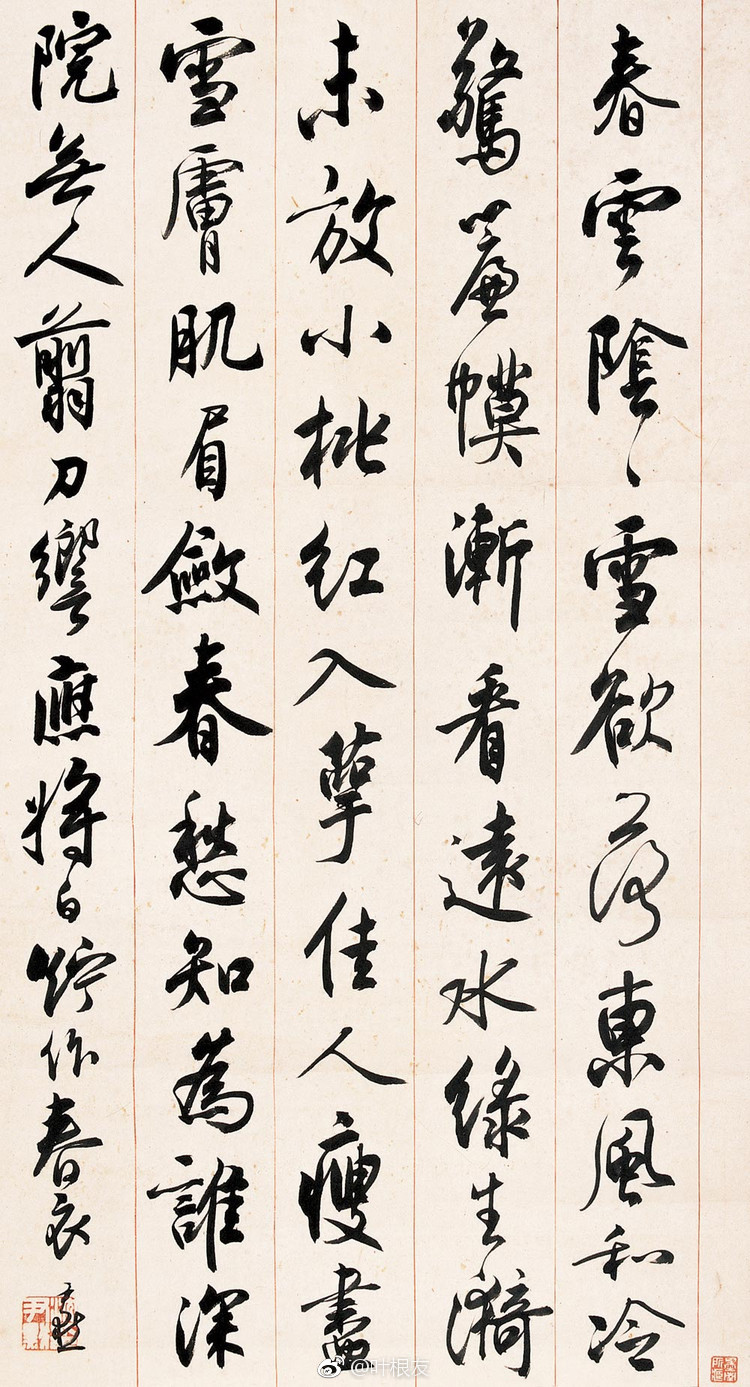 春雲陰〻雪欲落東風和冷
驚簾幙漸看遠水綠生漪
未放小桃紅入萼佳人瘦盡
雪膚肌眉斂春愁知為誰深
院無人翦刀響應將白紵作春衣
@叶根友